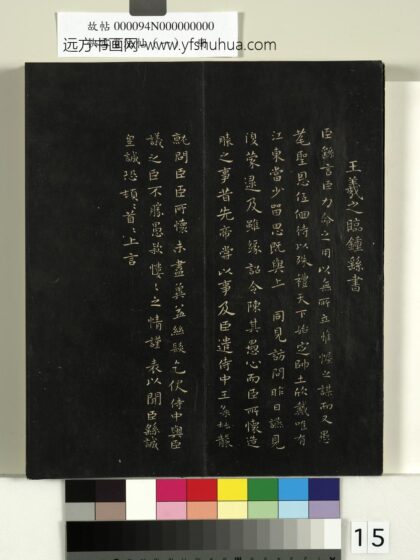 故帖 000094N000000000
远方书画网-www.yfshuhua.com
王羲之臨鍾繇書
臣繇言臣力命之用以無所立惟幄之謀而又愚
耄聖恩低佪待以殊禮天下始定師土欣戴唯有
江東當少留思既與上 同見訪問昨日䟽見
復蒙逮及雖緣詔令陳其愚心而臣所懷造
膝之事昔先帝嘗以事及臣遣侍中王粲杜襲
就問臣臣所懷未盡冀益絲髮乞使侍中與臣
議之臣不勝愚欵慺慺之情謹表以聞臣繇誠
皇誠恐頓首頓首上言
15